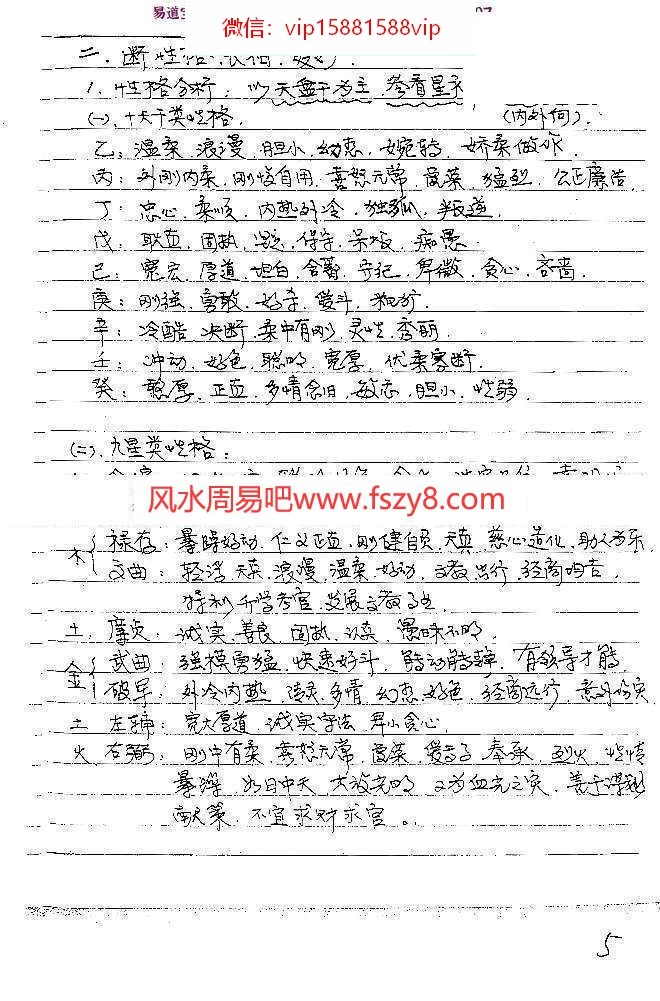 易道
微信：vip15881588vip
二.断性格
1.性格分析：以天盘干为主.参看星衣
(一).十天干类性格.（内外何）.
乙：温柔.浪漫.胆小.幻恋.婉转.娇柔做作.
丙：外刚内柔.刚愎自用.喜怒无常.猛烈.公正廉洁
丁：忠心.柔顺.内热外冷.独孤.叛逆.
戊：耿直.固执.保守.呆板.痴愚.
己：宽宏.厚道.坦白.含蓄.卑微.贪心.吝啬
庚：刚强.勇敢.好杀.爱斗.粗犷.
辛：冷酷.决断.柔中有刚.灵性.秀丽.
壬：冲动.好色.聪明.宽厚.优柔寡断.
癸：憨厚.正直.多情念旧.敏恋.胆小.性弱.
(二).九星类性格：
风水周易吧www.fszy8.com
木 禄存：暴躁好动.仁义正直.刚健自负.天真.慈心道化.助人为乐.
文曲：轻浮.浪漫.温柔.好动.文教出行.经商均吉.
特利升学考官.发展文教
土.廉贞：诚实.善良.固执.愚昧不明.
金 武曲：强模勇猛.快速好斗.能动能静.有领导才能
破军：外冷内热.多情.幻恋.好色.经商远行.意外伤灾
土 左辅：宽大厚道.诚实守法.卑小贪心.
火 右弼：刚中有柔.喜怒无常.奉承.烈火.性情
暴躁.如日中天.大放光明.又为血光之灾.善于谋划
献策.不宜求财求官。.
5